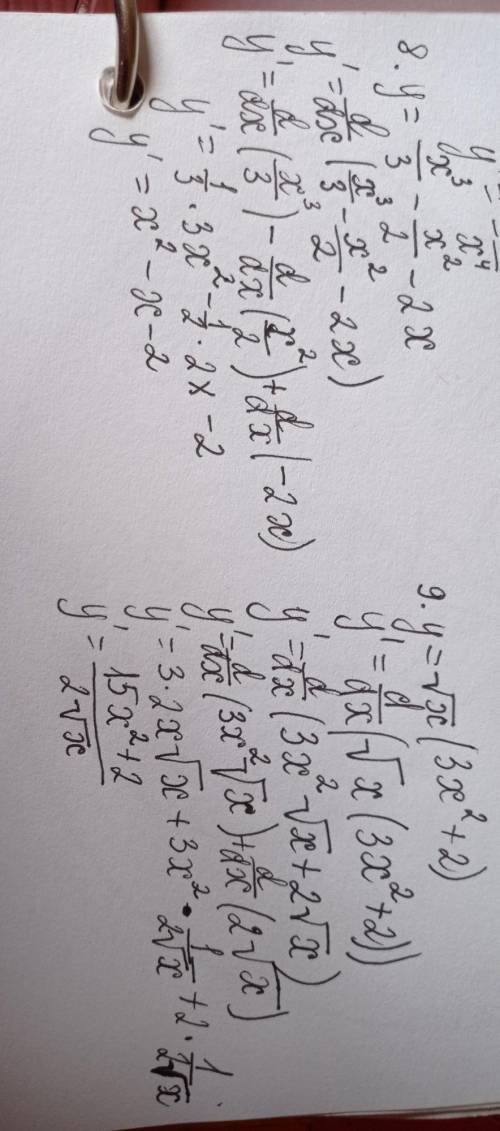 y' = - — x⁴
8. y = x³/3 - x²/2 - 2x
y' = d/dx (x³/3 - x²/2 - 2x)
y' = d/dx (x³/3) - d/dx (x²/2) + d/dx (-2x)
y' = 1/3 · 3x² - 1/2 · 2x - 2
y' = x² - x - 2
9. y = √x (3x² + 2)
y' = d/dx (√x (3x² + 2))
y' = d/dx (3x² √x + 2√x)
y' = d/dx (3x² √x) + d/dx (2√x)
y' = 3 · 2x√x + 3x² · 1/2√x + 2 · 1/2√x
y' = 15x² + 2/2√x